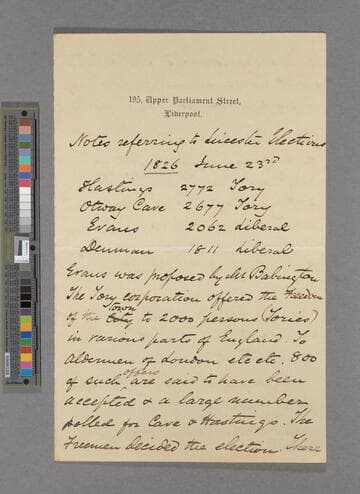 195, Upper Parliament Street,
Liverpool.
Notes referring to Leicester Elections
1826 June 23rd
Hastings 2772 Tory
Otway Cave 2677 Tory
Evans 2062 Liberal
Denman 1811 Liberal
Evans was proposed by Mr Babington
The Tory corporation offered the freedom
of the City town to 2000 persons (Tories)
in various parts of England. To
Aldermen of London etc etc. 800
of such offers are said to have been
accepted & a large number
polled for Cave & Hastings. The
Freemen decided the election. There